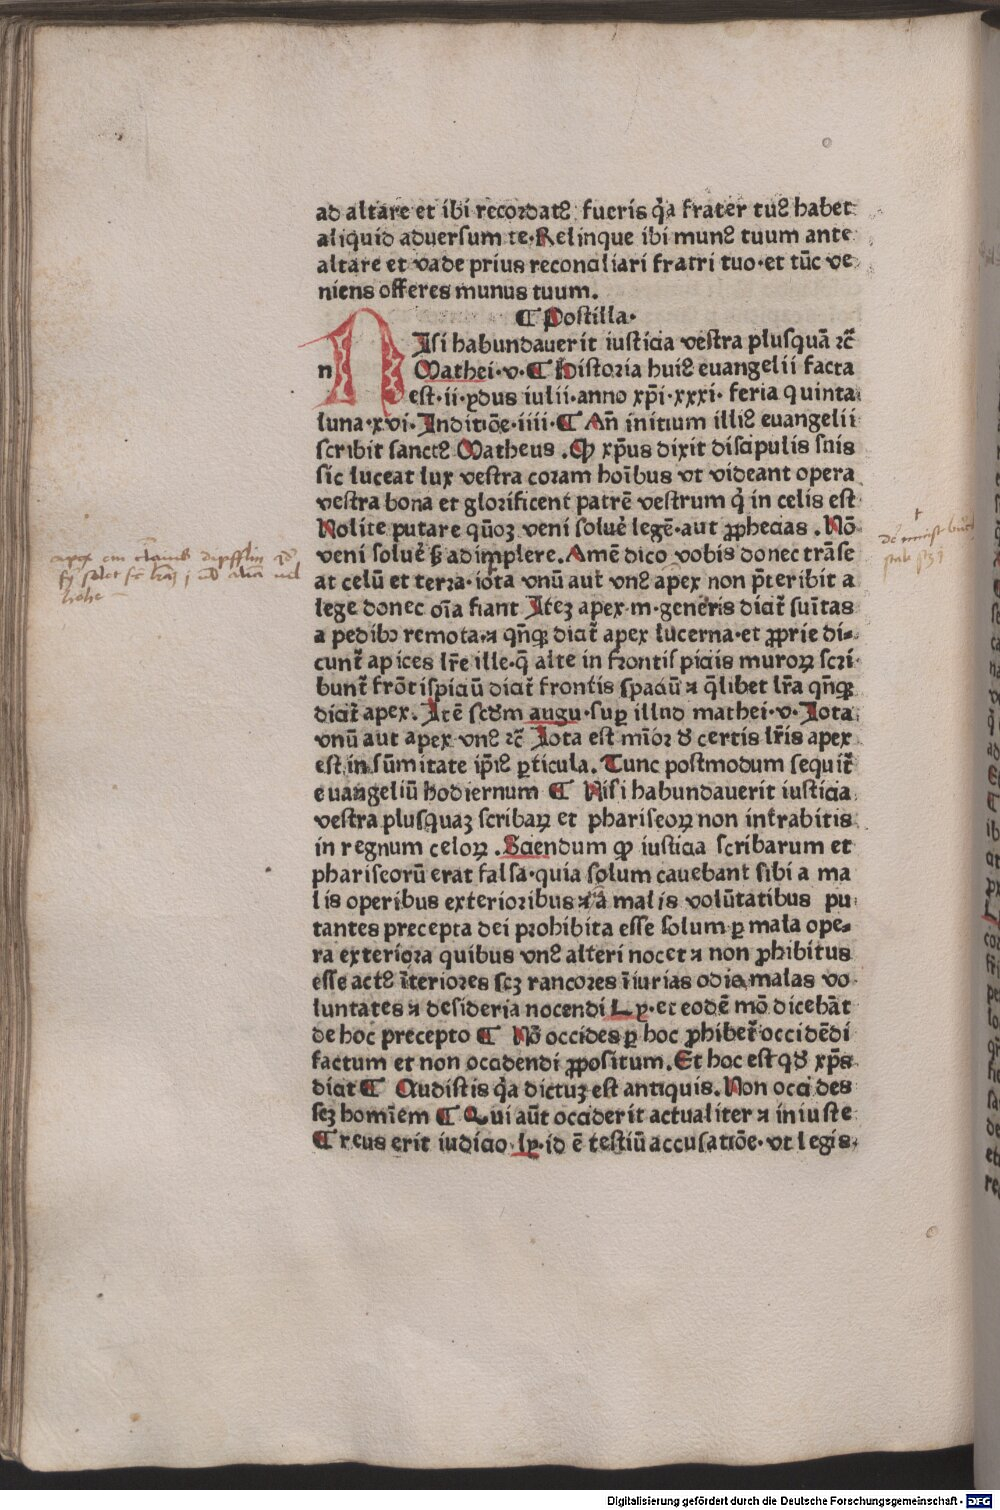 ad altare et ibi recordatꝰ fueris qͥa frater tuꝰ habet
aliquid aduersum te. Relinque ibi munꝰ tuum ante
altare et vade prius reconciliari fratri tuo. et tūc ve
niens offeres munus tuum.
¶ Postilla.
Nisi habundauerit iusticia vestra plusquā ⁊c̄
n Mathei. v. ¶ Historia huiꝰ euangelii facta
est. ii. ydus iulii. anno xp̄i. xxxi. feria quinta
luna. xvi. Inditiōe. iiii. ¶ An̄ initium illiꝰ euangelii
scribit sanctꝰ Matheus. Ꝙ xp̄us dixit discipulis suis
sic luceat lux vestra coram hoībus vt videant opera
vestra bona et glorificent patrē vestrum qͥ in celis est
Nolite putare qm̄oꝫ veni soluē legē. aut ꝓphecias. Nō
veni soluē sꝫ adimplere. Amē dico vobis donec trāse
at celū et terra. iota vnū aut vnꝰ apex non p̄teribit a
lege donec oīa fiant Iteꝫ apex. m. generis dicit̄ sūītas
a pedibꝫ remota. ⁊ qn̄qꝫ dicit̄ apex lucerna. et ꝓprie di=
cunt̄ apices lr̄e ille. q̄ alte in frontispiciis muroꝝ scri
bunt̄ frōtispiciū dicit̄ frontis spaciū ⁊ q̄libet lr̄a qn̄qꝫ
dicit̄ apex. Itē scd̄m augu. suꝑ illud mathei. v. Iota
vnū aut apex vnꝰ ⁊c̄ Iota est mīor de certis lr̄is apex
est in sūmitate ip̄iꝰ ꝑticula. Tunc postmodum sequit̄
euangeliū hodiernum ¶ Nisi habundauerit iusticia
vestra plusquaꝫ scribaꝝ et phariseoꝝ non intrabitis
in regnum celoꝝ. Sciendum ꝙ iusticia scribarum et
phariseorū erat falsa. quia solum cauebant sibi a ma
lis operibus exterioribus ⁊ ā malis volūtatibus pu
tantes precepta dei prohibita esse solum ꝑ mala ope=
ra exteriora quibus vnꝰ alteri nocet ⁊ non ꝓhibitus
esse actꝰ īteriores scꝫ rancores īiurias odia malas vo
luntates ⁊ desideria nocendi Ly. et eodē mō dicebāt
de hoc precepto ¶ Nō occides ꝑ hoc ꝓhibet̄ occidēdi
factum et non occidendi ꝓpositum. Et hoc est qd̄ xp̄s
dicit ¶ Audistis qͥa dictuꝫ est antiquis. Non occides
scꝫ homīem ¶ Qui aūt occiderit actualiter ⁊ iniuste
¶ reus erit iudicio ly. id ē testiū accusatiōe. vt legis
Digitalisierung gefördert durch die Deutsche Forschungsgemeinschaft - DFG